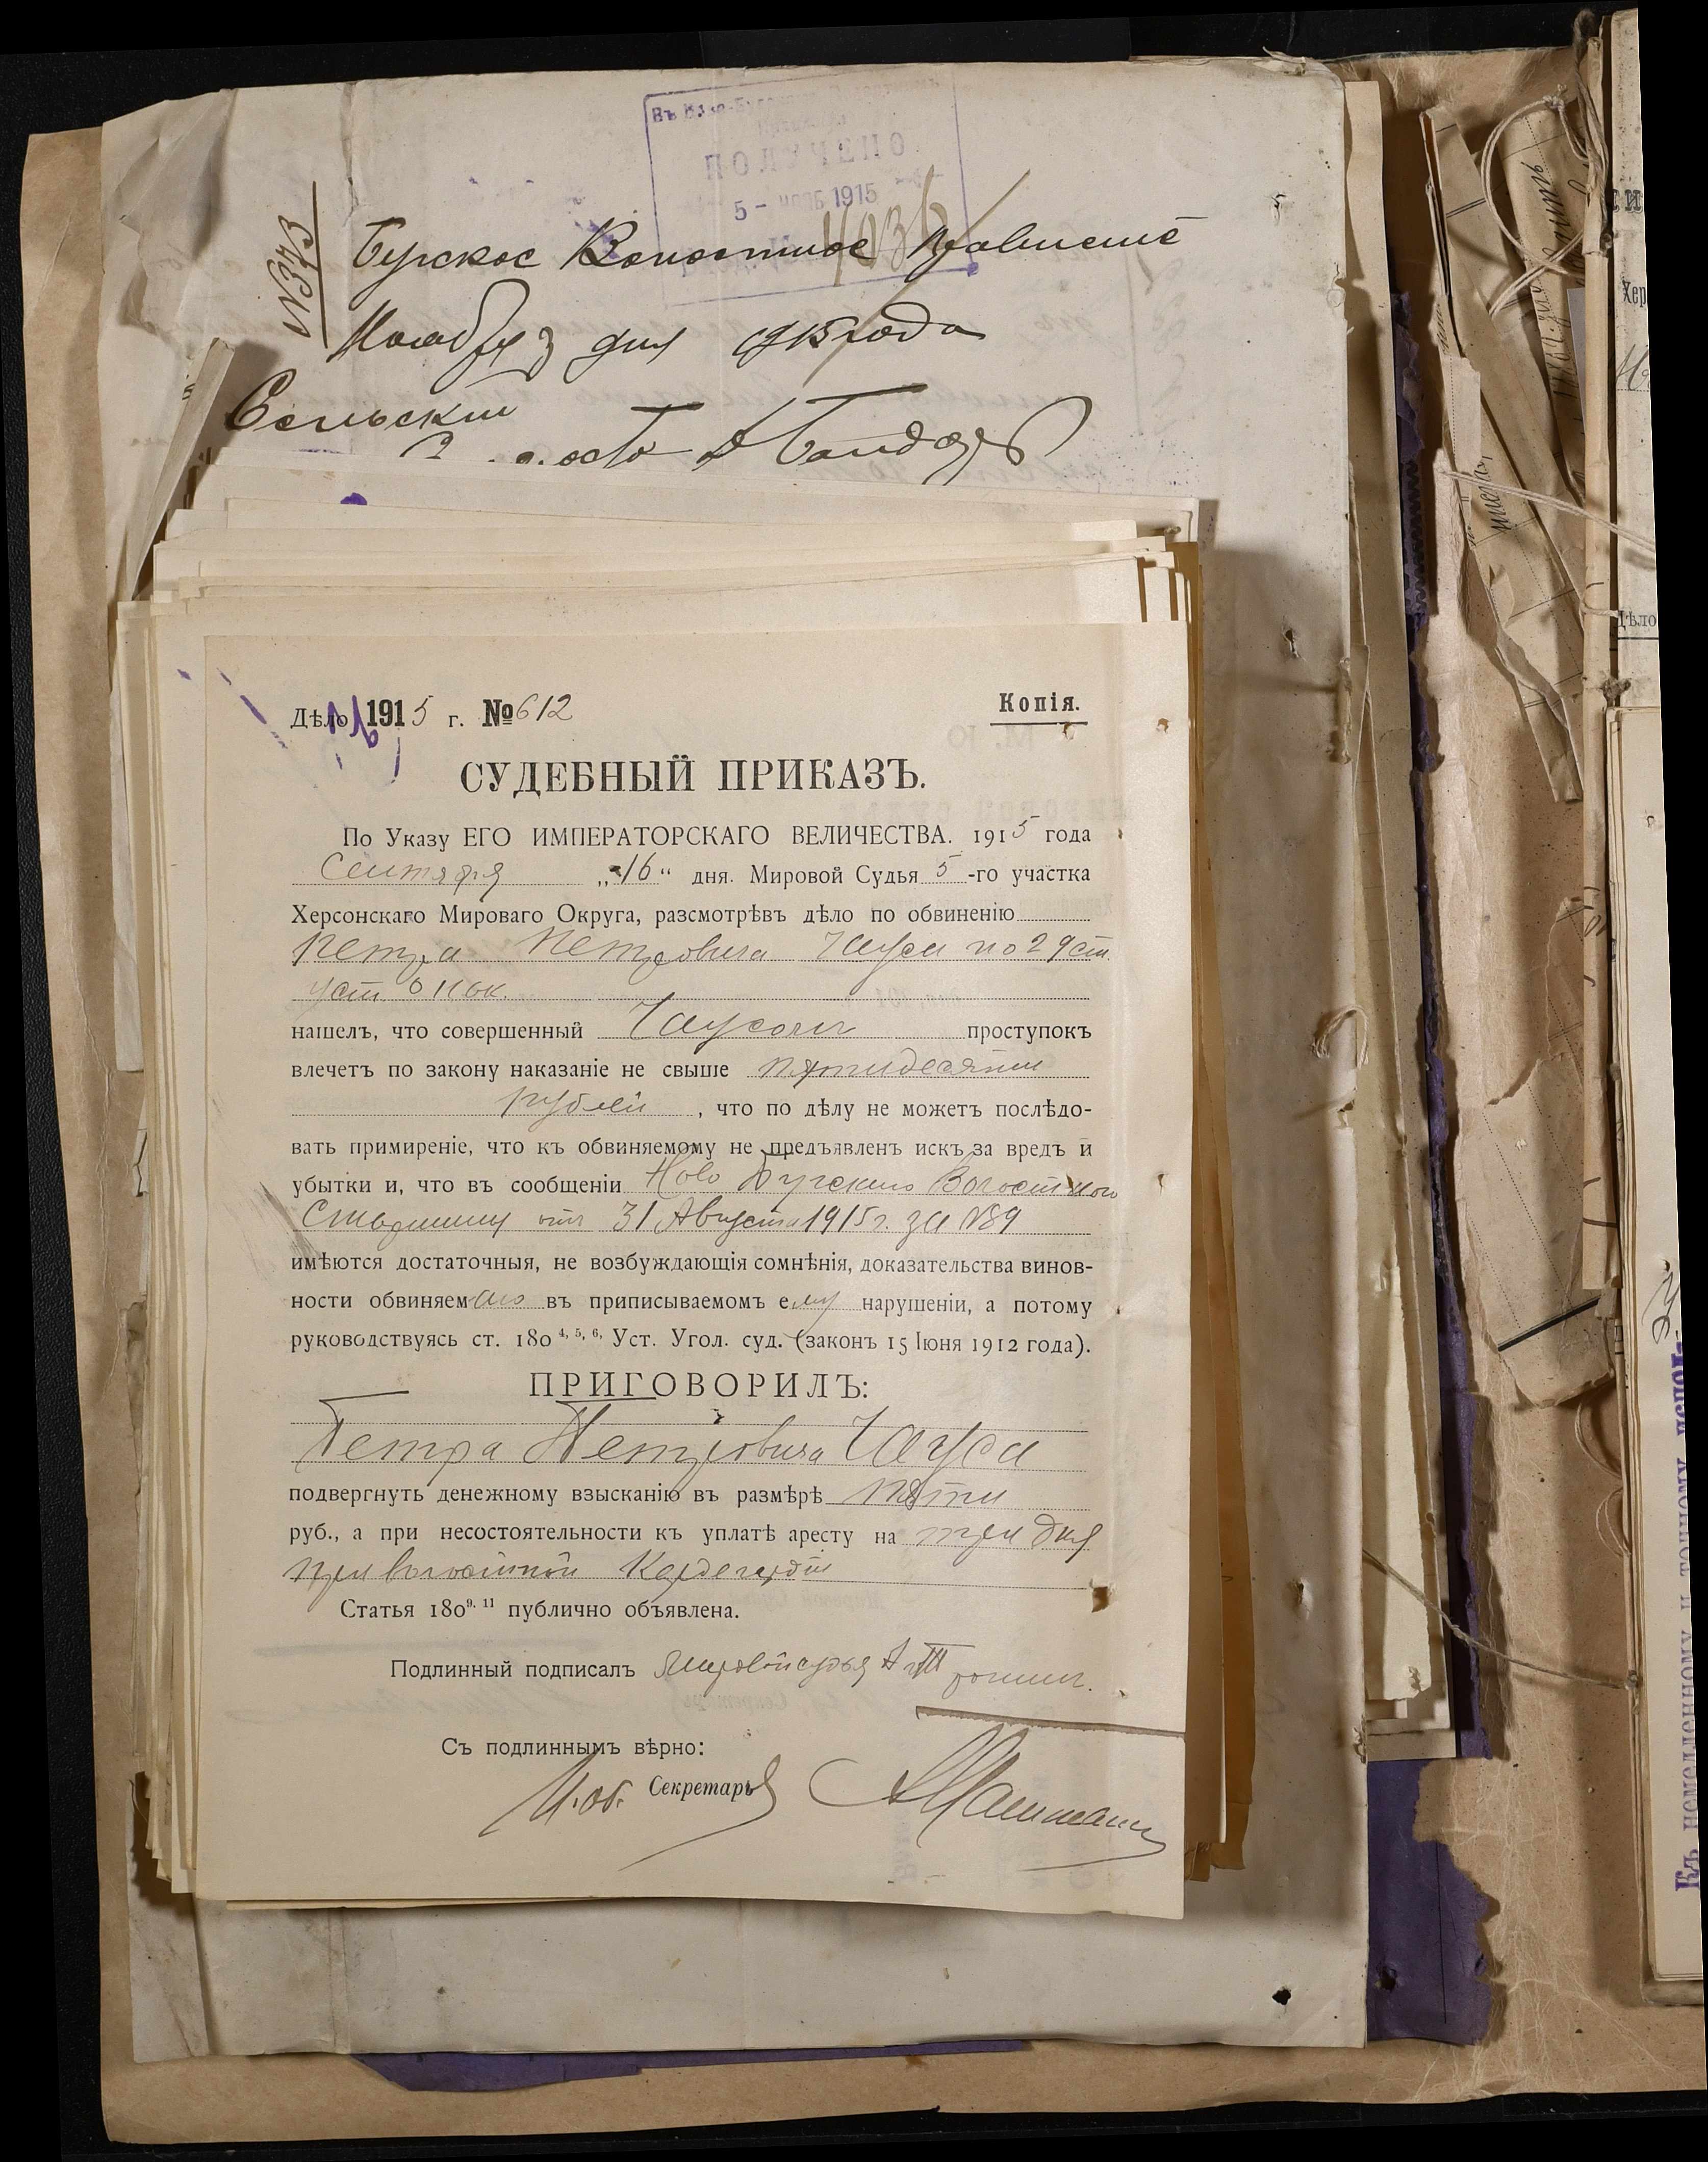 ПОЛУЧЕНО
5 - НОЯБ 1915
№373
Бугское Волостное Правление
Ноября 3 дня 1915 года
Сельский
Дѣло 1915 г. № 612
Копія.
СУДЕБНЫЙ ПРИКАЗЪ.
По Указу ЕГО ИМПЕРАТОРСКАГО ВЕЛИЧЕСТВА. 1915 года
Сентября „16“ дня. Мировой Судья 5-го участка
Херсонскаго Мироваго Округа, разсмотрѣвъ дѣло по обвиненію
Петра Петровича Чауса по 29 ст.
уст о нак.
нашелъ, что совершенный Чаусомъ проступокъ
влечетъ по закону наказаніе не свыше пятидесяти
рублей, что по дѣлу не можетъ послѣдо-
вать примиреніе, что къ обвиняемому не предъявленъ искъ за вредъ и
убытки и, что въ сообщеніи Ново Бугскаго Волостного
Старшины отъ 31 Августа 1915 г. за №89
имѣются достаточныя, не возбуждающія сомнѣнія, доказательства винов-
ности обвиняемаго въ приписываемомъ ему нарушеніи, а потому
руководствуясь ст. 180 4, 5, 6, Уст. Угол. суд. (законъ 15 Іюня 1912 года).
ПРИГОВОРИЛЪ:
Петра Петровича Чауса
подвергнуть денежному взысканію въ размѣрѣ пяти
руб., а при несостоятельности къ уплатѣ аресту на три дня
при волостной Кордегардіи
Статья 180 9, 11 публично объявлена.
Подлинный подписалъ Мировой судья
Съ подлиннымъ вѣрно:
И. об. Секретаря
Дѣло
Къ немедленному и точному